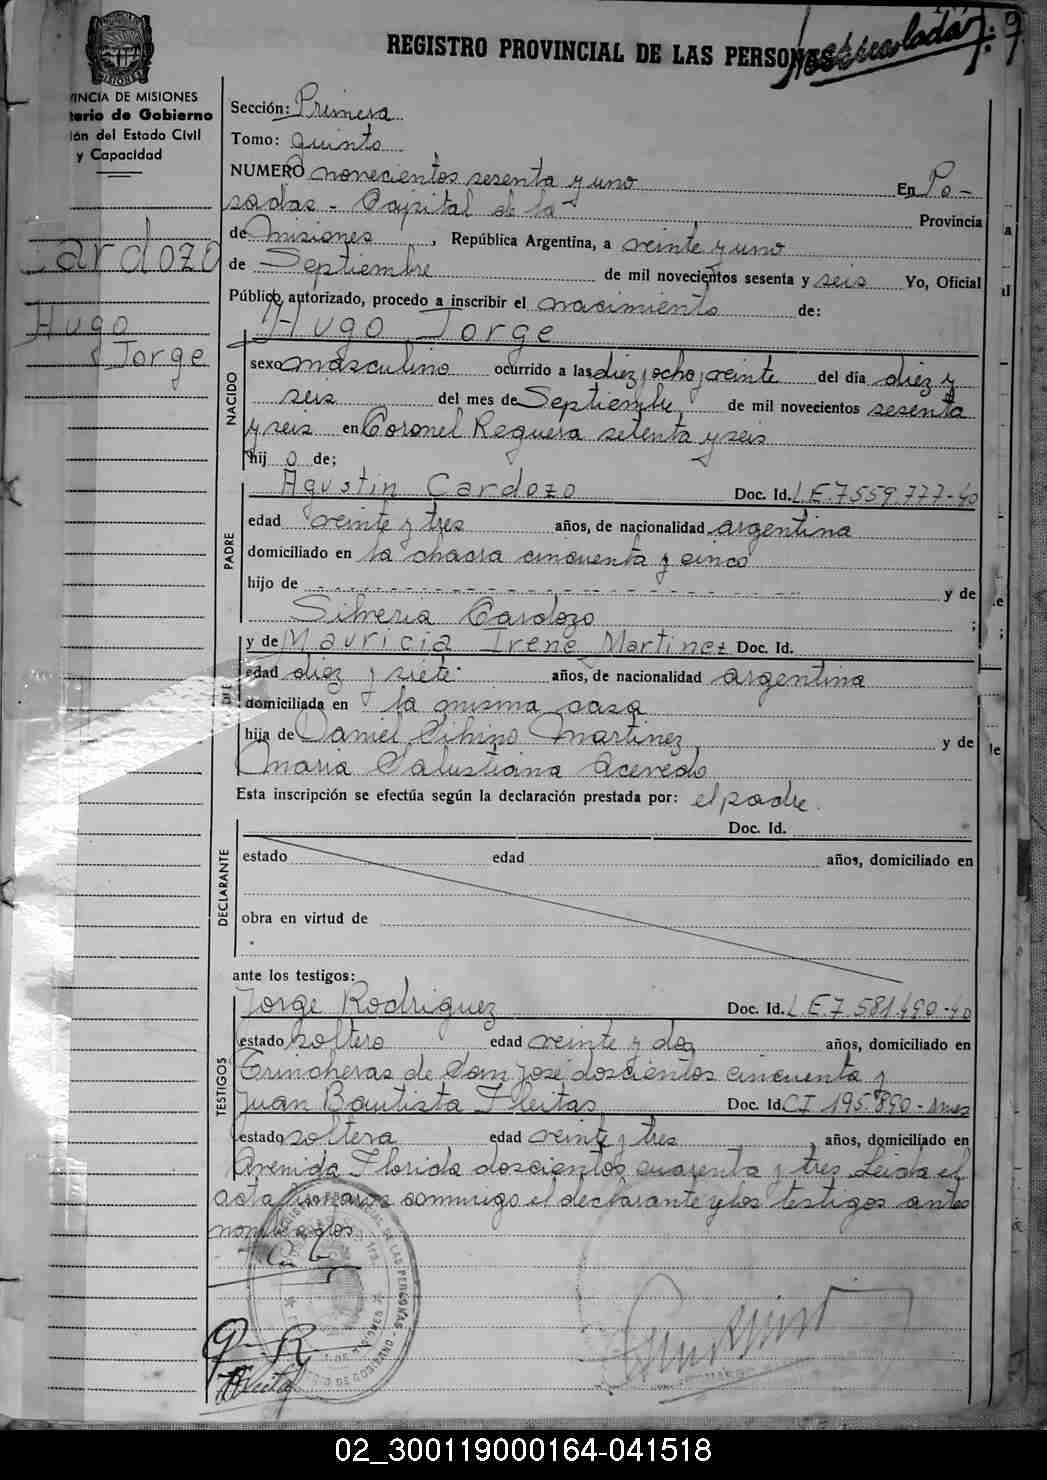 REGISTRO PROVINCIAL DE LAS PERSONAS
MISIONES
VINCIA DE MISIONES
terio de Gobierno
ión del Estado Civil
y Capacidad
Cardozo
Hugo
Jorge
Sección: Primera
Tomo: Quinto
NUMERO novecientos sesenta y uno En Po-
sadas - Capital de la Provincia
de Misiones, República Argentina, a veinte y uno
de Septiembre de mil novecientos sesenta y seis Yo, Oficial
Público autorizado, procedo a inscribir el nacimiento de:
Hugo Jorge
NACIDO
sexo masculino ocurrido a las diez, ocho, veinte del día diez y
seis del mes de Septiembre de mil novecientos sesenta
y seis en Coronel Reguera setenta y seis
hij o de;
PADRE
Agustin Cardozo Doc. Id. L.E.7559.777-40
edad veinte y tres años, de nacionalidad argentina
domiciliado en la chacra cincuenta y cinco
hijo de y de
Silveria Cardozo ;
y de Mauricia Irene Martinez Doc. Id.
edad diez y siete años, de nacionalidad argentina
domiciliada en la misma casa
hija de Daniel Martinez y de
Maria Salustiana Acevedo
Esta inscripción se efectúa según la declaración prestada por: el padre.
Doc. Id.
DECLARANTE
estado edad años, domiciliado en
obra en virtud de
ante los testigos:
TESTIGOS
Jorge Rodriguez Doc. Id. L.E.7.581.490-40
estado soltero edad veinte y dos años, domiciliado en
Trincheras de San José doscientos cincuenta y
Juan Bautista Fleitas Doc. Id. CI 195.890-
estado soltera edad veinte y tres, años, domiciliado en
Avenida Florida doscientos cuarenta y tres Leida el
acta firmaron conmigo el declarante y los testigos antes
nombrados
02_300119000164-041518